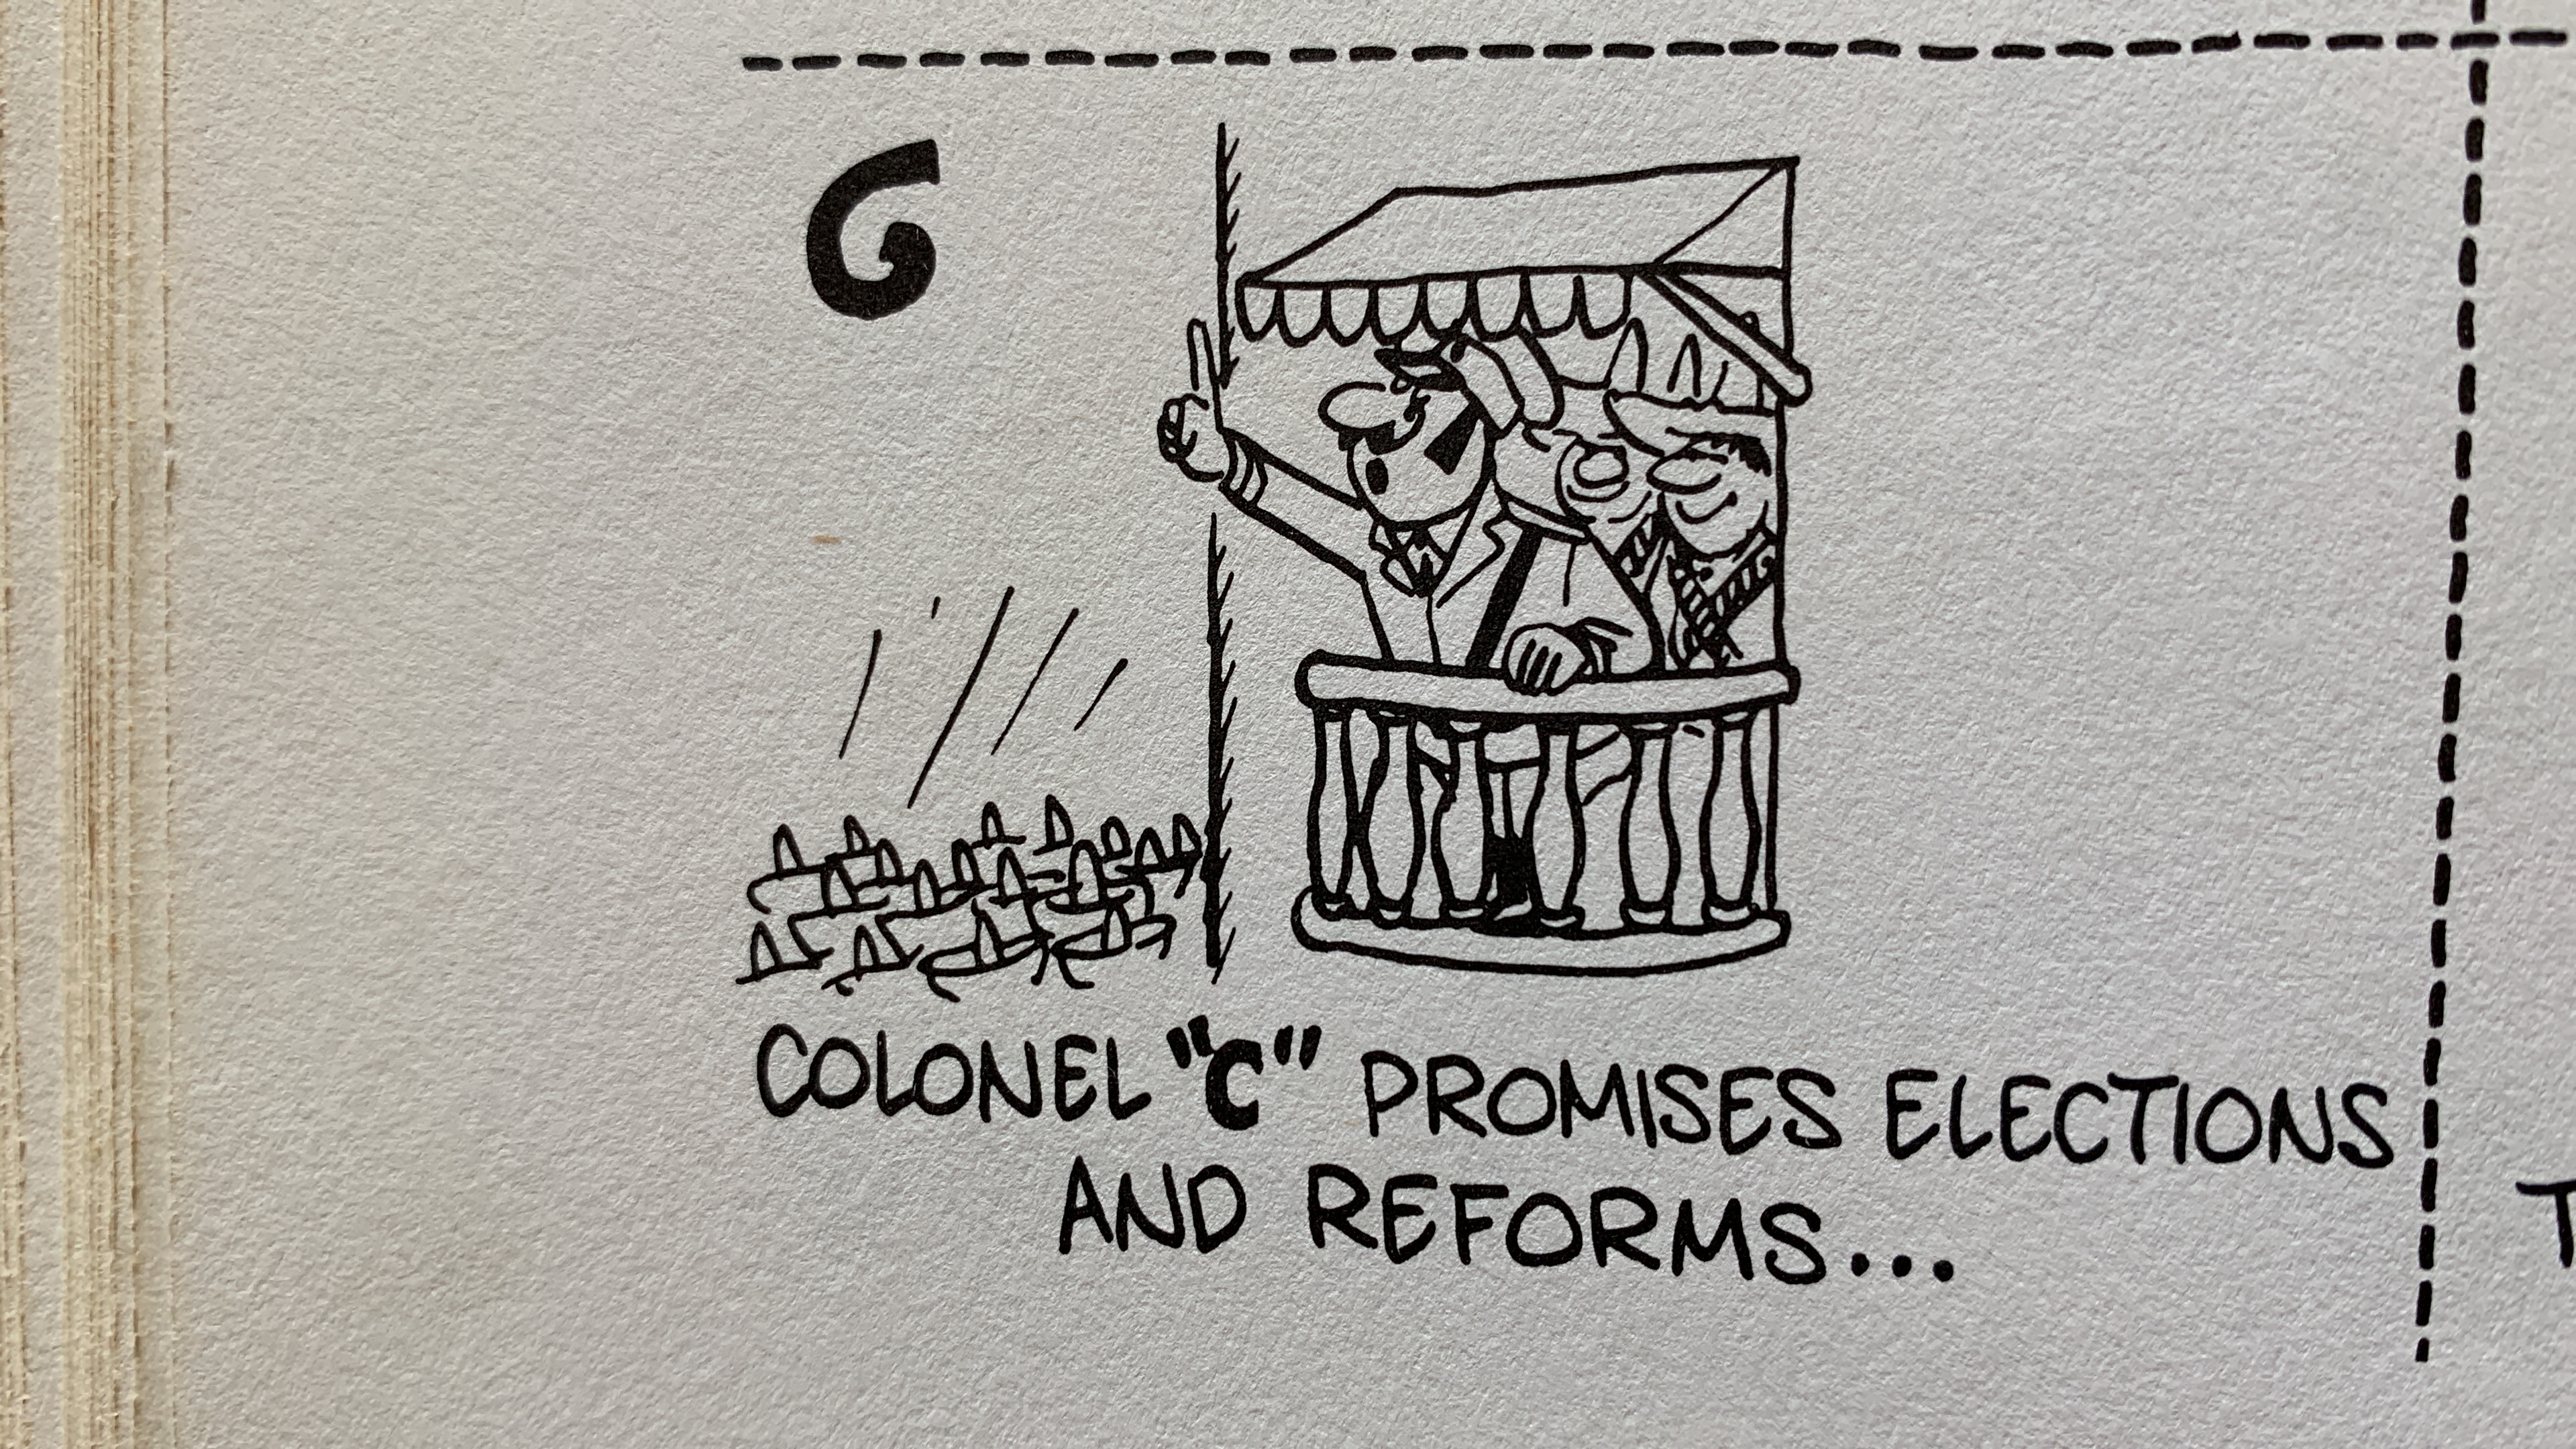 6
COLONEL "C" PROMISES ELECTIONS
AND REFORMS...
T